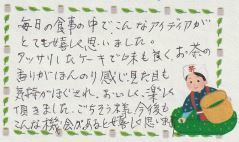 毎日の食事の中でこんなアイディアが
とても嬉しく思いました。
アッサリしたケーキで少も良く、お茶の
香りがほんのり感じ見た目も
気持がほぐされ、おいしく、楽しく
頂きました。ごちそう様。今後も
こんな機会があると嬉しく思い